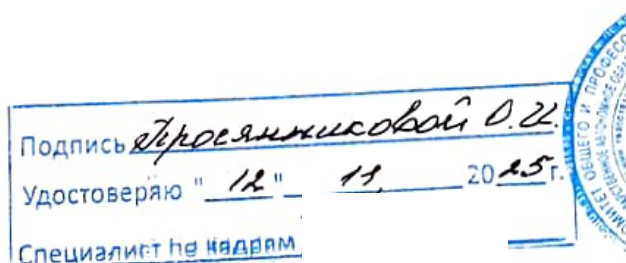 Подпись Просянниковой О.И.
Удостоверяю "12" 11 2025 г.
Специалист по кадрам
ОБЩЕГО И ПРОФЕСС